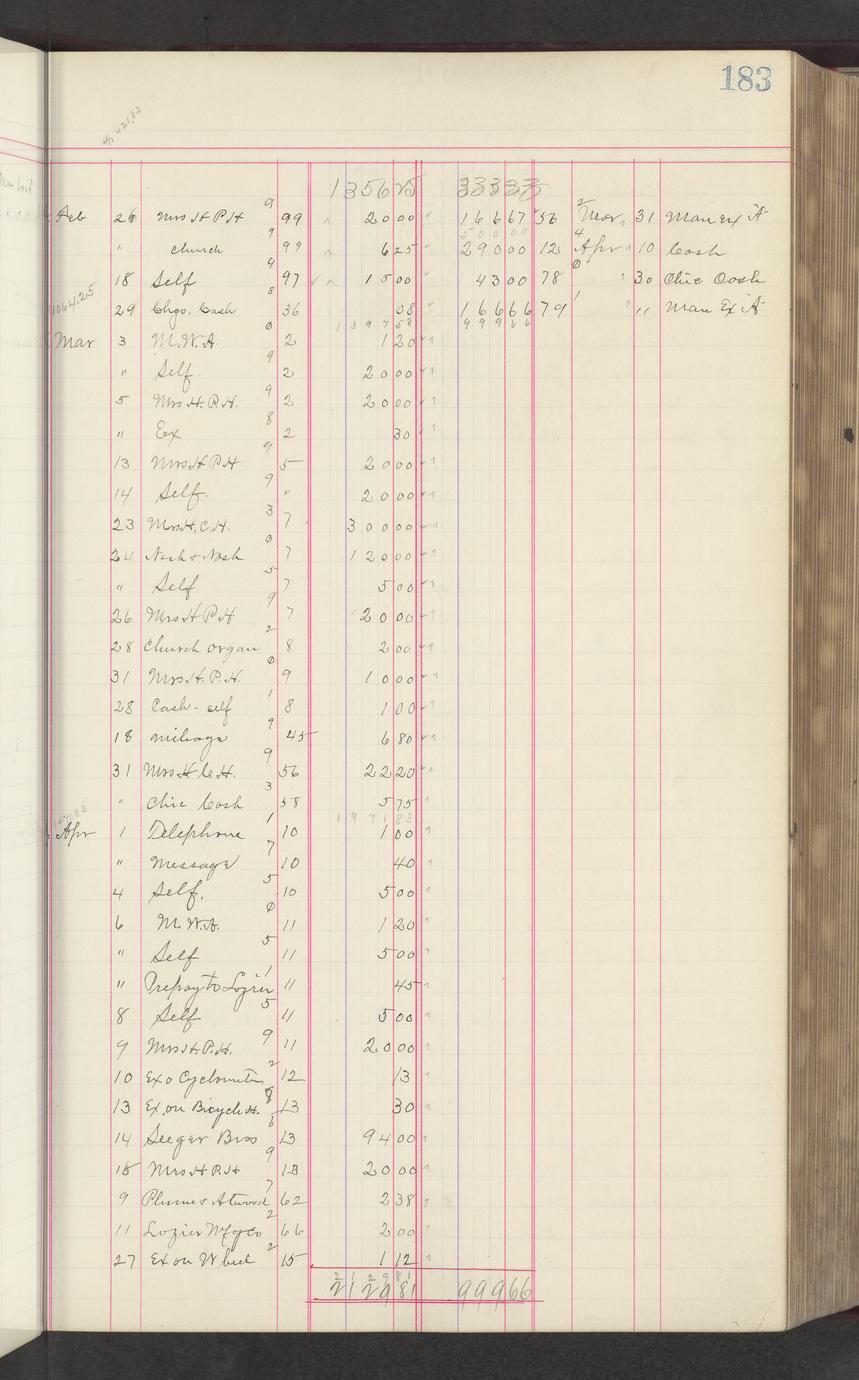 183
4/1 421.83
135625 33333
Feb 26 Mrs H P H 9 99 20 00 166 67 56 2 Mar 31 Man Ex A
" Church 9 99 6 25 500 00 290 00 12 4 Apr 10 Cash
18 Self 4 97 15 00 43 00 78 0 " 30 Chic Cash
1064.25 29 Chgo. Cash 8 36 08 166 66 79 1 " " Man Ex A
1397 58 999 66
Mar 3 M.W.A. 0 2 1 20
" Self 9 2 20 00
5 Mrs H. P. H. 9 2 20 00
" Ex 8 2 30
13 Mrs H P H 9 5 20 00
14 Self. 9 " 20 00
23 Mrs H. C. H. 3 7 300 00
24 Nash & Nash 0 7 120 00
" Self 5 7 5 00
26 Mrs H P H 9 7 20 00
28 Church organ 2 8 2 00
31 Mrs H. P. H. 0 9 10 00
28 Cash - self 1 8 1 00
18 mileage 9 45 6 80
31 Mrs H C H. 9 56 22 20
" Chic Cash 3 58 5 75
1991 83
Apr 1 Telephone 1 10 1 00
" Message 7 10 40
4 Self. 5 10 5 00
6 M.W.A. 0 11 1 20
" Self 5 11 5 00
" Prepay to Lozier 1 11 45
8 Self 5 11 5 00
9 Mrs H. P. H. 9 11 20 00
10 Ex o Cyclometer 2 12 13
13 Ex. on Bicycle H. 8 13 30
14 Seeger Bros 6 13 94 00
15 Mrs H P. H 9 13 20 00
9 Plume & Atwood 7 62 2 38
11 Lozier Mfg Co 2 66 2 00
27 Ex on Wheel 2 15 1 12
2129 81
2129 81 999 66